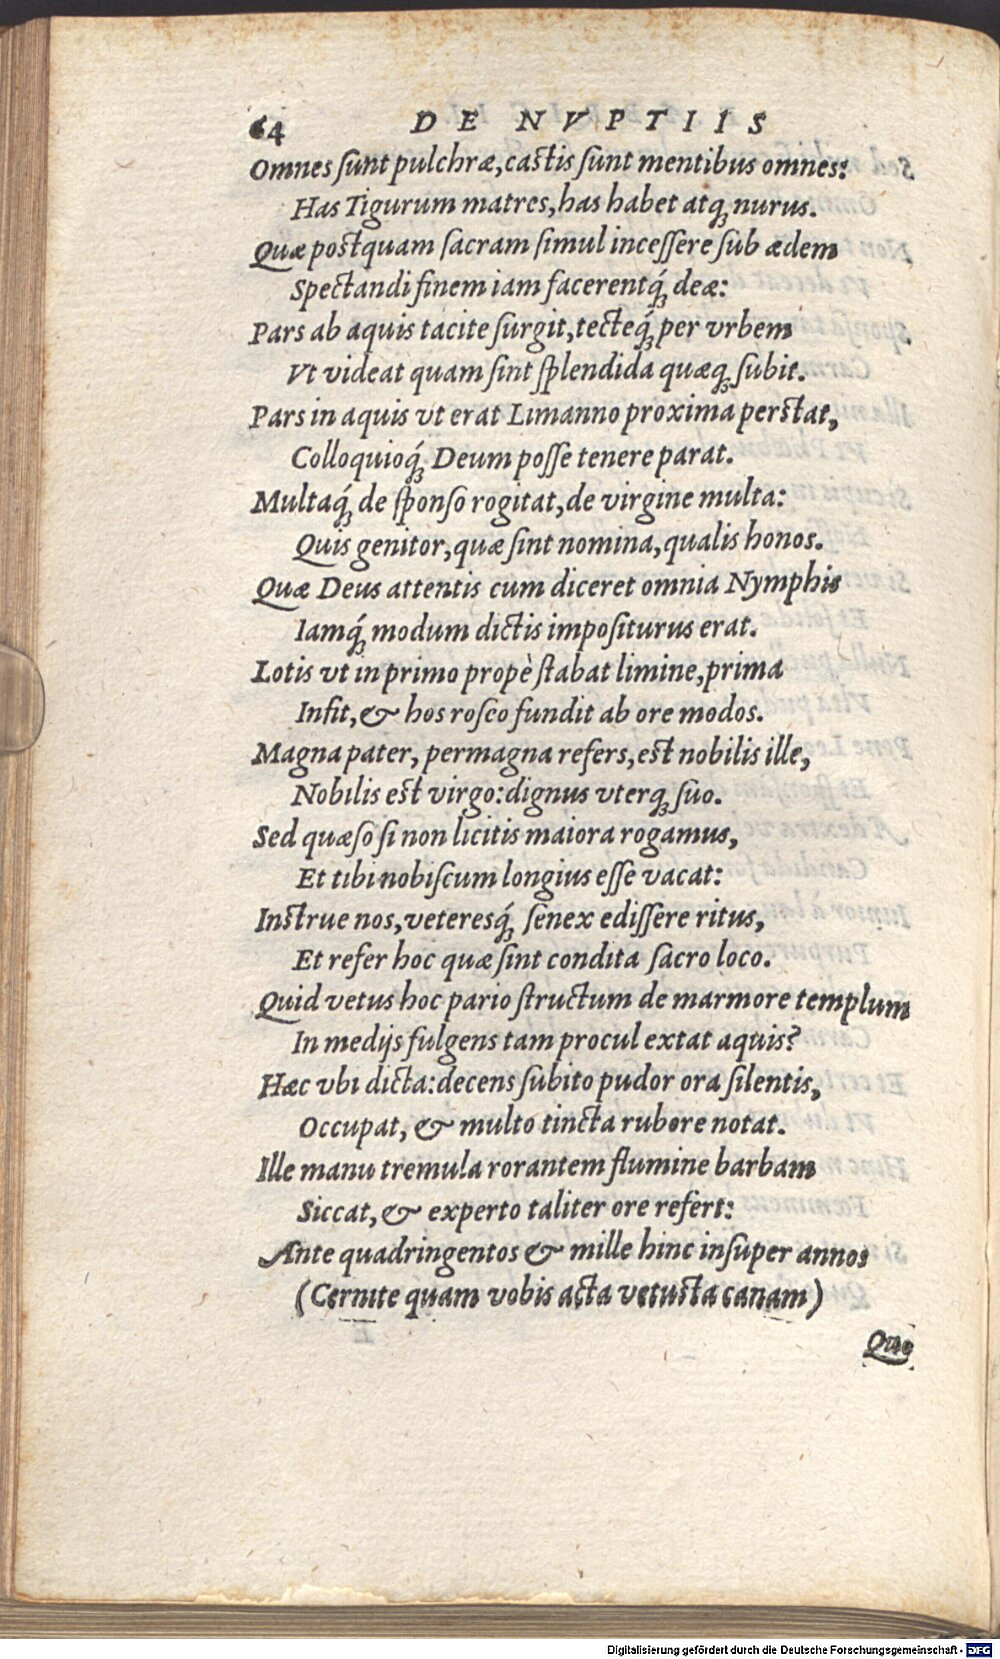 64 DE NVPTIIS
Omnes ſunt pulchræ, caſtis ſunt mentibus omnes:
Has Tigurum matres, has habet atq; nurus.
Quæ poſtquam ſacram ſimul inceſſere ſub ædem
Spectandi finem iam facerentq́; deæ:
Pars ab aquis tacite ſurgit, tecteq́; per vrbem
Vt videat quam ſint ſplendida quæq; ſubit.
Pars in aquis vt erat Limanno proxima perſtat,
Colloquioq́; Deum poſſe tenere parat.
Multaq́; de ſponſo rogitat, de virgine multa:
Quis genitor, quæ ſint nomina, qualis honos.
Quæ Deus attentis cum diceret omnia Nymphis
Iamq́; modum dictis impoſiturus erat.
Lotis vt in primo propè ſtabat limine, prima
Infit, & hos roſeo fundit ab ore modos.
Magna pater, permagna refers, eſt nobilis ille,
Nobilis eſt virgo: dignus vterq; ſuo.
Sed quæſo ſi non licitis maiora rogamus,
Et tibi nobiſcum longius eſſe vacat:
Inſtrue nos, veteresq́; ſenex ediſſere ritus,
Et refer hoc quæ ſint condita ſacro loco.
Quid vetus hoc pario ſtructum de marmore templum
In medijs fulgens tam procul extat aquis?
Hæc vbi dicta: decens ſubito pudor ora ſilentis,
Occupat, & multo tincta rubore notat.
Ille manu tremula rorantem flumine barbam
Siccat, & experto taliter ore refert:
Ante quadringentos & mille hinc inſuper annos
(Cernite quam vobis acta vetuſta canam)
Quo
Digitalisierung gefördert durch die Deutsche Forschungsgemeinschaft - DFG